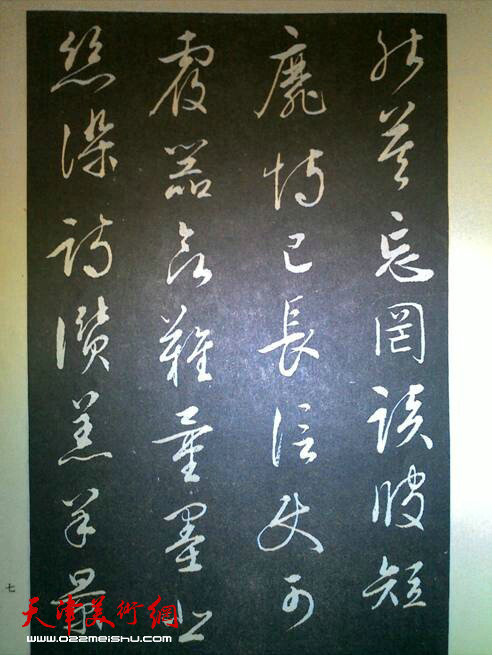 能莫忘罔談彼短
靡恃己長信使可
覆器欲難量墨悲
絲染詩讚羔羊景
七
天津美術網
www.022meishu.com